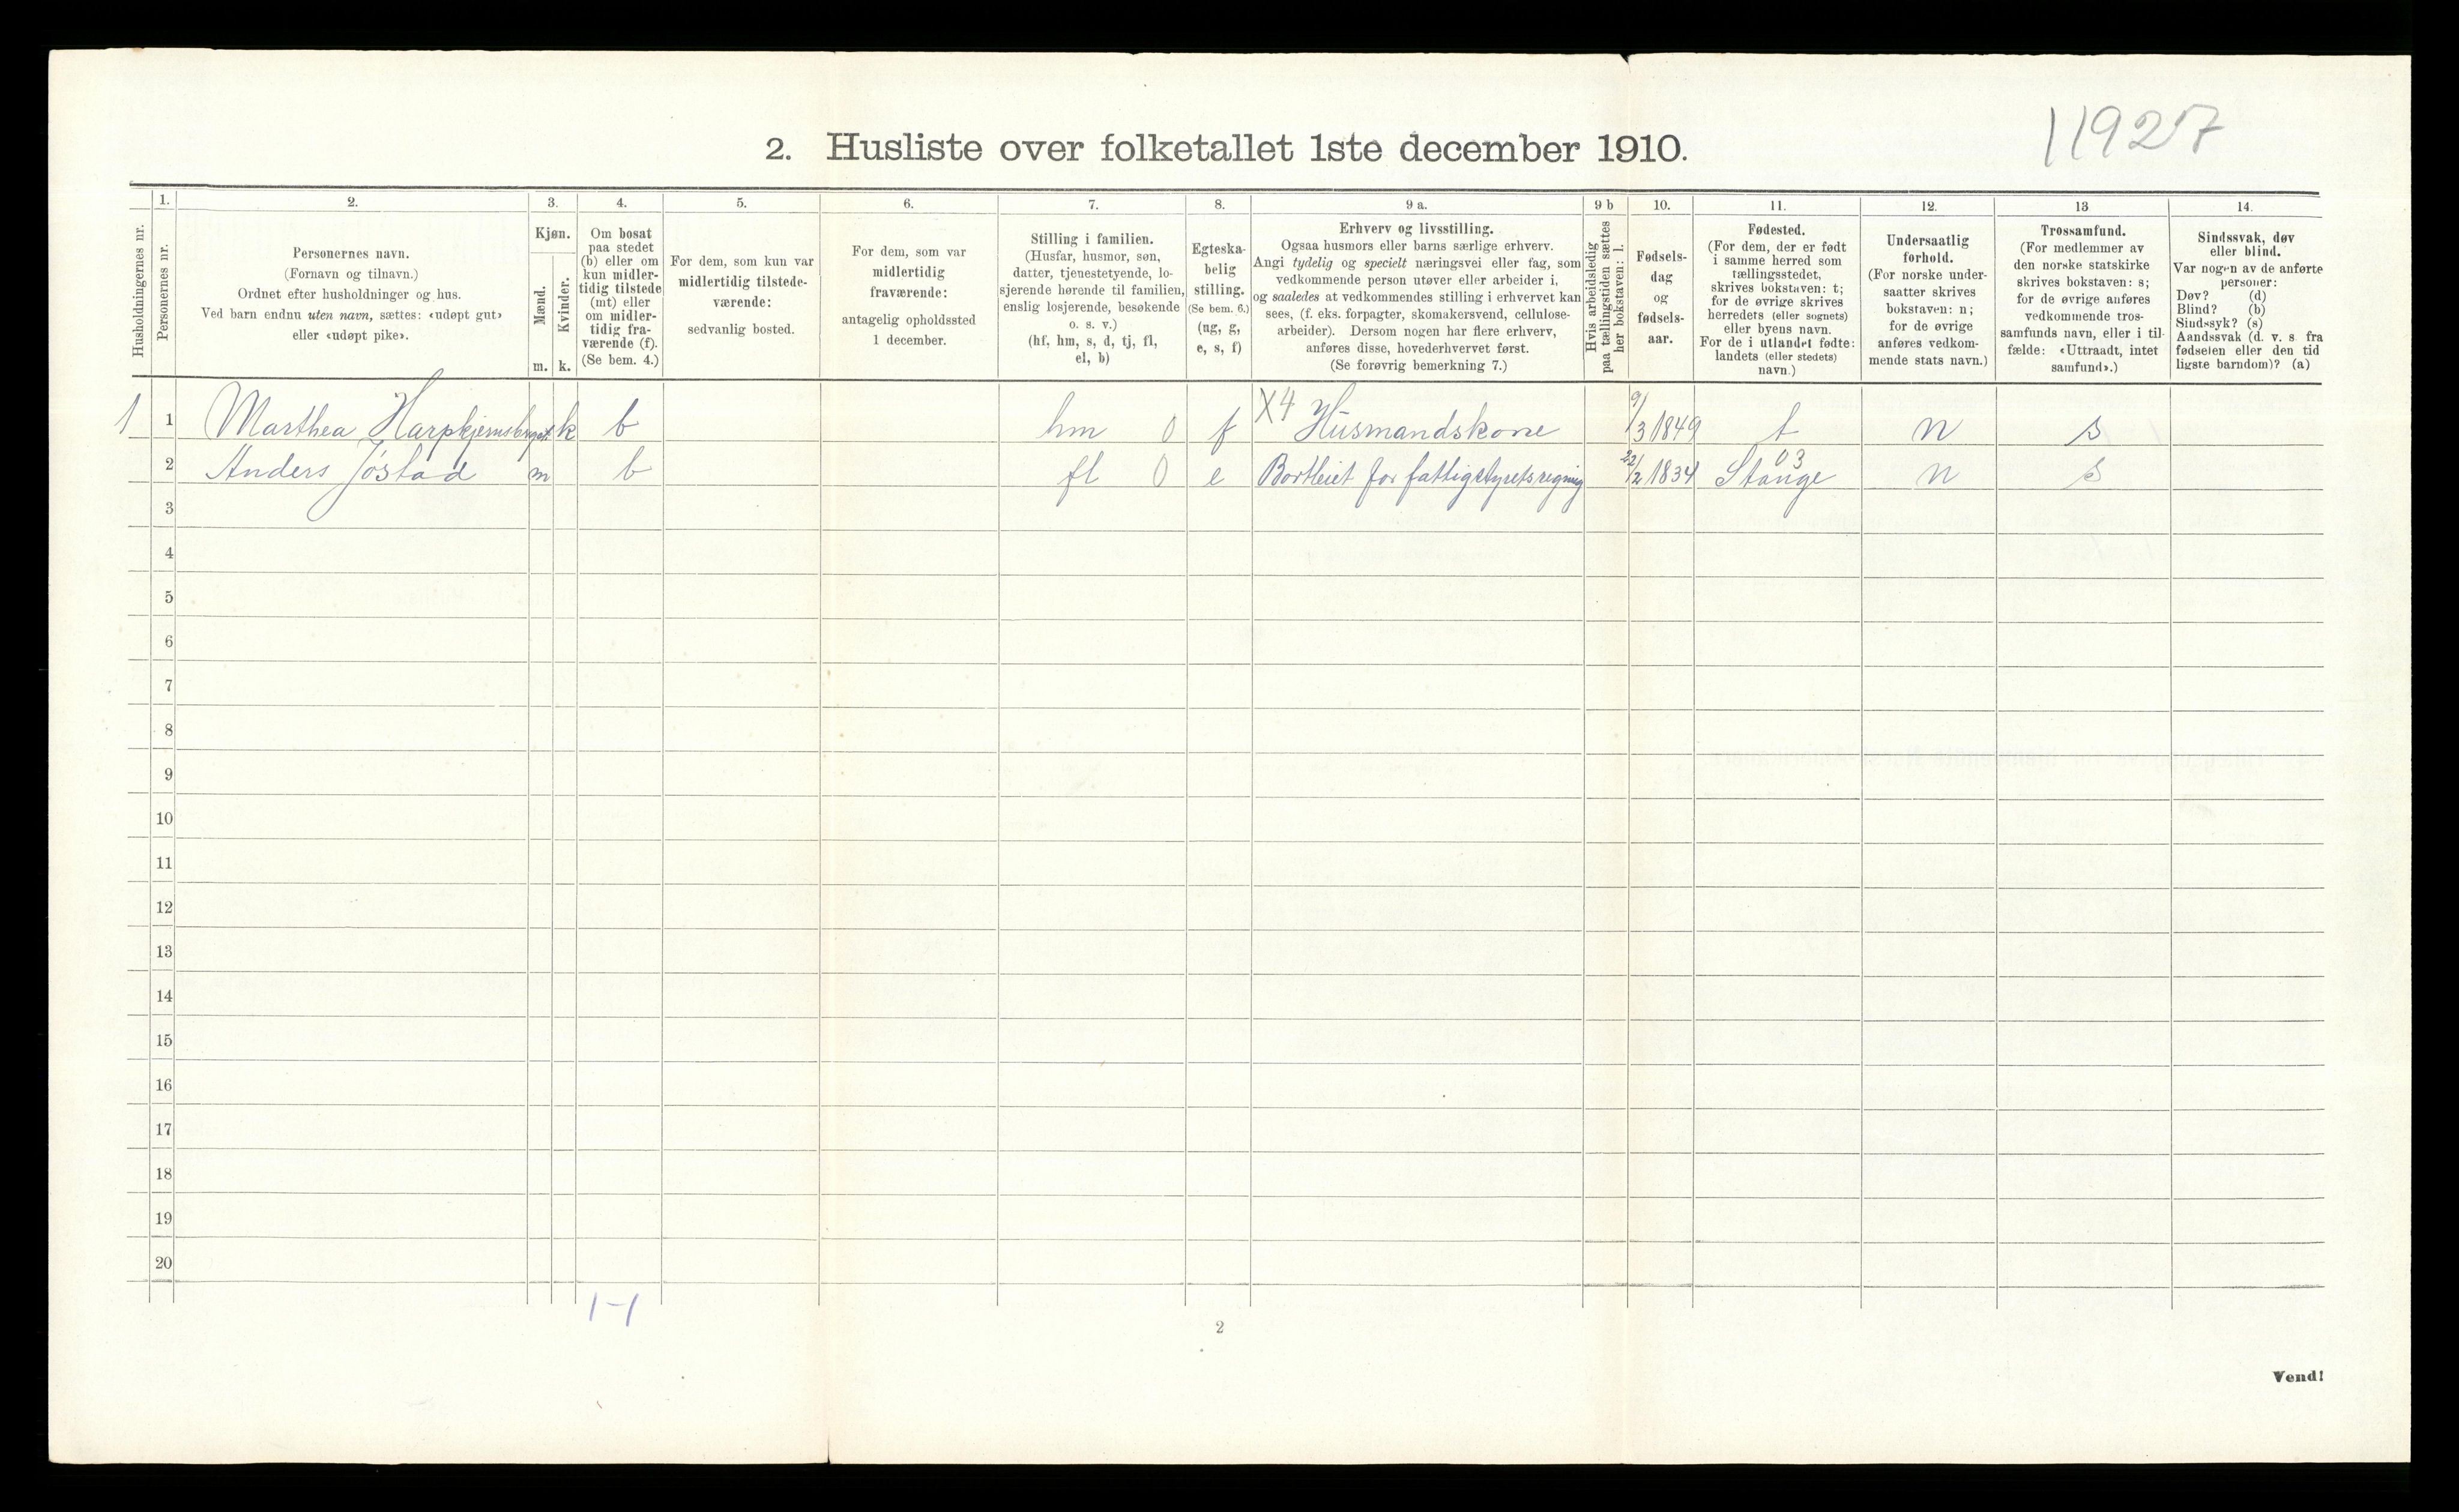 11927
2. Husliste over folketallet 1ste december 1910.
Husholdningernes nr.
1.
Personernes nr.
2.
Personernes navn.
(Fornavn og tilnavn.)
Ordnet efter husholdninger og hus.
Ved barn endnu uten navn, sættes: «udøpt gut»
eller «udøpt pike».
3.
Kjøn.
Mænd.
Kvinder.
m. k.
4.
Om bosat
paa stedet
(b) eller om
kun midler-
tidig tilstede
(mt) eller
om midler-
tidig fra-
værende (f).
(Se bem. 4.)
5.
For dem, som kun var
midlertidig tilstede-
værende:
sedvanlig bosted.
6.
For dem, som var
midlertidig
fraværende:
antagelig opholdssted
1 december.
7.
Stilling i familien.
(Husfar, husmor, søn,
datter, tjenestetyende, lo-
sjerende hørende til familien,
enslig losjerende, besøkende
o. s. v.)
(hf, hm, s, d, tj, fl,
el, b)
8.
Egteska-
belig
stilling.
(Se bem. 6.)
(ug, g,
e, s, f)
9 a.
Erhverv og livsstilling.
Ogsaa husmors eller barns særlige erhverv.
Angi tydelig og specielt næringsvei eller fag, som
vedkommende person utøver eller arbeider i,
og saaledes at vedkommendes stilling i erhvervet kan
sees, (f. eks. forpagter, skomakersvend, cellulose-
arbeider). Dersom nogen har flere erhverv,
anføres disse, hovederhvervet først.
(Se forøvrig bemerkning 7.)
9 b
Hvis arbeidsledig
paa tællingstiden sættes
her bokstaven: l.
10.
Fødsels-
dag
og
fødsels-
aar.
11.
Fødested.
(For dem, der er født
i samme herred som
tællingsstedet,
skrives bokstaven: t;
for de øvrige skrives
herredets (eller sognets)
eller byens navn.
For de i utlandet fødte:
landets (eller stedets)
navn.)
12.
Undersaatlig
forhold.
(For norske under-
saatter skrives
bokstaven: n;
for de øvrige
anføres vedkom-
mende stats navn.)
13
Trossamfund.
(For medlemmer av
den norske statskirke
skrives bokstaven: s;
for de øvrige anføres
vedkommende tros-
samfunds navn, eller i til-
fælde: «Uttraadt, intet
samfund».)
14.
Sindssvak, døv
eller blind.
Var nogen av de anførte
personer:
Døv? (d)
Blind? (b)
Sindssyk? (s)
Aandssvak (d. v. s. fra
fødselen eller den tid
ligste barndom)? (a)
1 1 Marthea k b hm 0 f X4 Husmandskone 9/3 1849 t n s
2 Anders Jøstad m b fl 0 e Bortleiet for fattigstyrets regning 22/2 1834 Stange 03 n s
3
4
5
6
7
8
9
10
11
12
13
14
15
16
17
18
19
20
1-1
2
Vend!